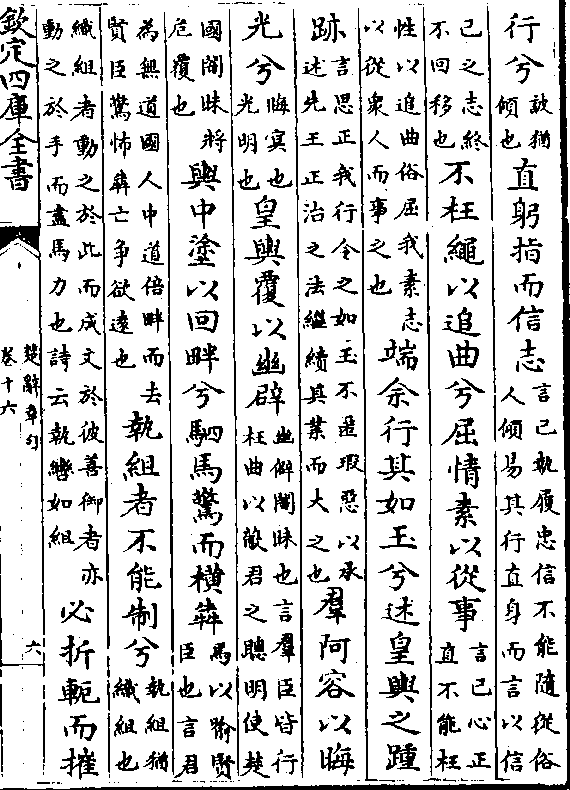 行兮詖猶傾也直躬指而信志言已執履忠信不能隨從俗人傾易其行直身而言以信
已之志終不回移也不枉繩以追曲兮屈情素以從事言已心正直不能枉
性以追曲俗屈我素志以從衆人而事之也端余行其如玉兮述皇輿之踵
跡言思正我行令之如玉不匿瑕惡以承述先王正治之法繼續其業而大之也羣阿容以晦
光兮晦冥也光明也皇輿覆以幽辟幽僻闇昧也言羣臣皆行枉曲以蔽君之聰明使楚
國闇昧將危覆也輿中塗以回畔兮駟馬驚而橫犇馬以喻賢臣也言君
為無道國人中道倍畔而去賢臣驚怖犇亡爭欲遠也執組者不能制兮執組猶織組也
織組者動之於此而成文於彼善御者亦動之於手而盡馬力也詩云執轡如組必折軛而摧
欽定四庫全書
楚辭章句
卷十六
六